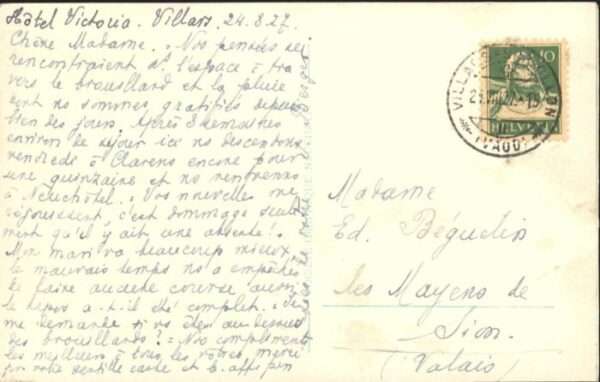 Hôtel Victoria. Villars. 24.8.27.
Chère Madame. Nos pensées se
rencontraient ds l'espace à tra
vers le brouillard et la pluie
dont ns sommes gratifiés depuis
bien des jours. Après 3 semaines
environ de séjour ici ns descendons
vendredi à Clarens encore pour
une quinzaine et ns rentrerons
à Neuchâtel. Vos nouvelles me
réjouissent, c'est dommage seule
ment qu'il y ait une absente!
Mon mari va beaucoup mieux,
le mauvais temps ns a empêchés
de faire aucune course aussi
le repos a-t-il été complet. Je
me demande si vs êtes au dessus
des brouillards? Nos compliments
les meilleurs à tous les vôtres, merci
por votre gentille carte et
Madame
Ed. Béguelin
Les Mayens de
Sion
(Valais)
10
HELVETIA
VILLARS
(VAUD)